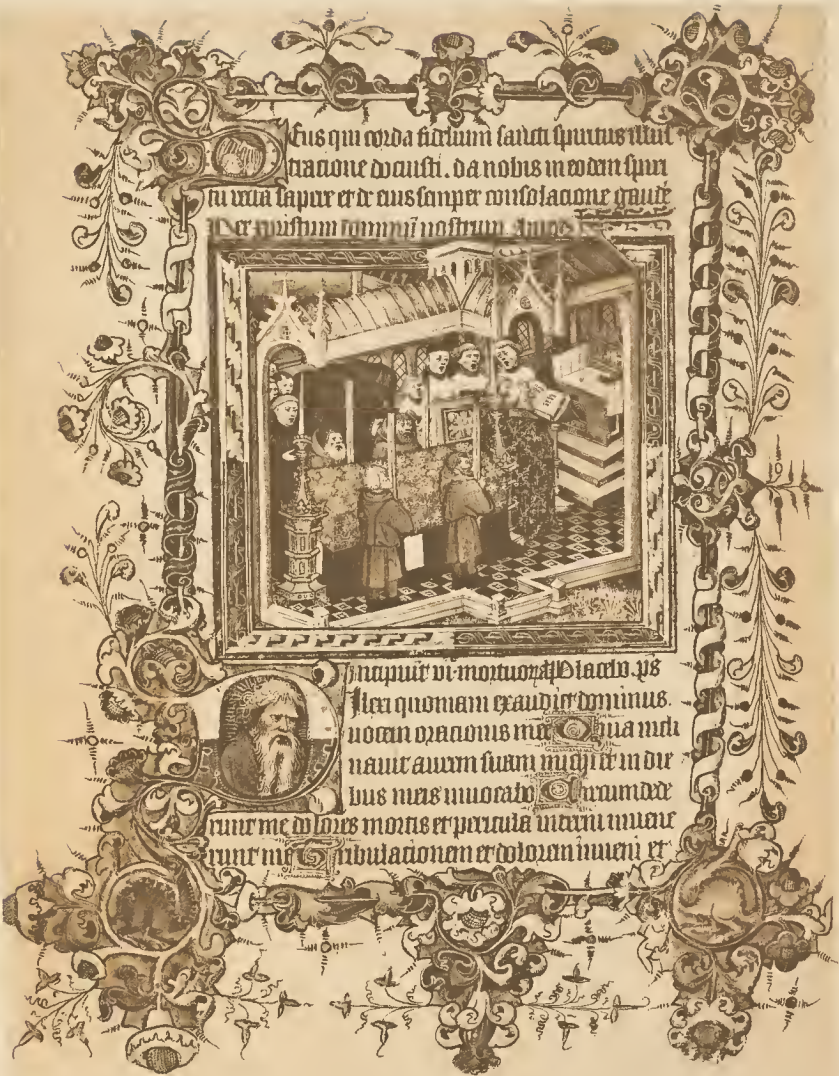 Deus qui corda fidelium sancti spiritus illus
tracione docuisti . da nobis in eodem spiri
tu recta sapere et de eius semper consolacione gaude
Per xpistum dominū nostrum. Amen
Incipiūt vi mortuoꝝ Placebo. ps
Dilexi quoniam exaudiet dominus.
uocem oracionis mee Quia incli
nauit aurem suam michi et in die
bus meis inuocabo Circumdede
runt me dolores mortis et pericula inferni inuene
runt me Tribulationem et dolorem inueni et